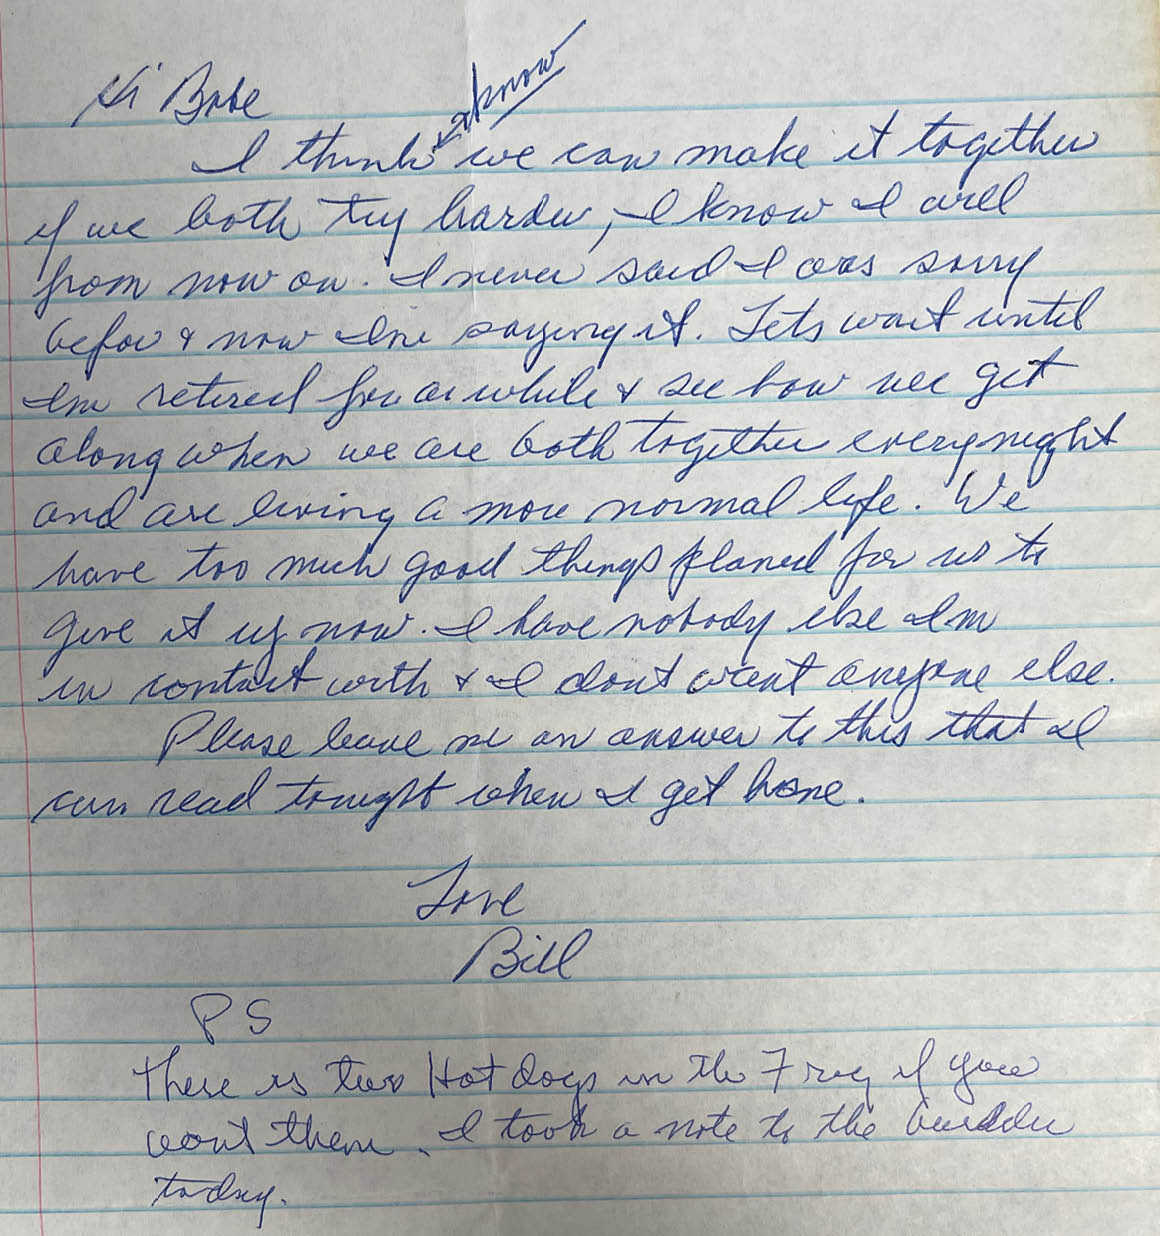 Hi Babe
I think & know we can make it together
if we both try harder, I know I will
from now on. I never said I was sorry
before & now I'm saying it. Lets wait until
I'm retired for awhile & see how we get
along when we are both together every night
and are living a more normal life. We
have too much good things planed for us to
give it up now. I have nobody else I'm
in contact with & I dont want anyone else.
Please leave me an answer to this that I
can read tonight when I get home.
Love
Bill
PS
There is two Hot dogs in the Frig if you
want them. I took a note to the builder
today.